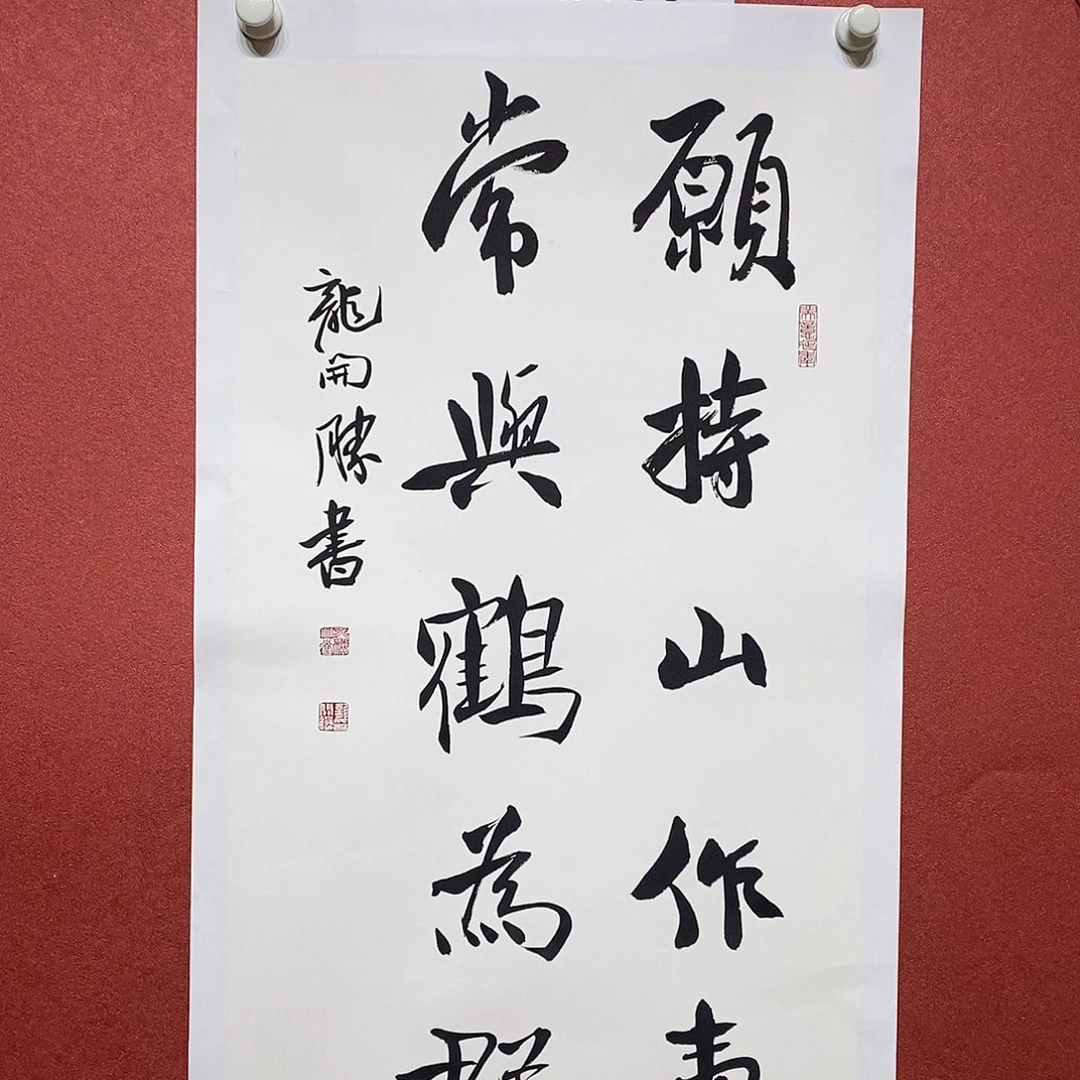 願持山作壽
常與鶴為群
龍開勝書